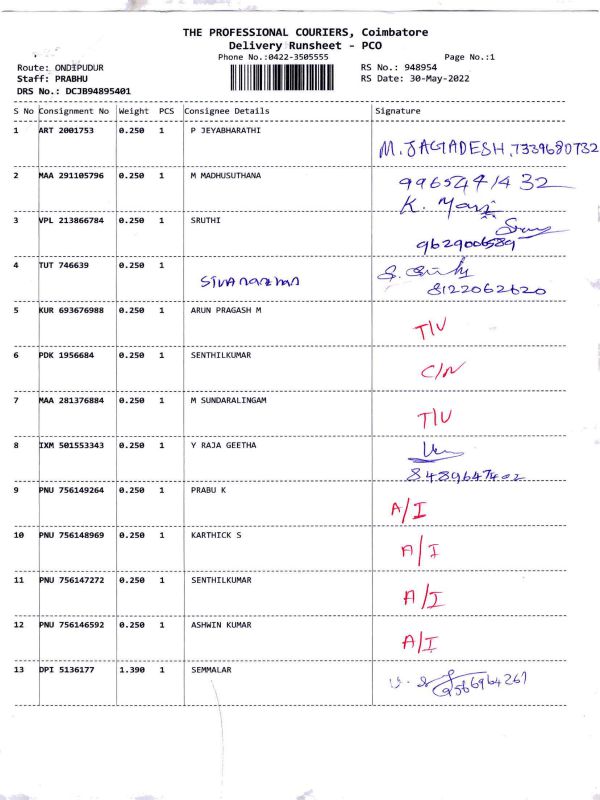 THE PROFESSIONAL COURIERS, Coimbatore
Delivery Runsheet - PCO
Phone No.:0422-3505555 Page No.:1
Route: ONDIPUDUR RS No.: 948954
Staff: PRABHU RS Date: 30-May-2022
DRS No.: DCJB94895401
S No Consignment No Weight PCS Consignee Details Signature
1 ART 2001753 0.250 1 P JEYABHARATHI
M. JAGADESH, 7339680732
2 MAA 291105796 0.250 1 M MADHUSUTHANA
9965441432
K. Mani
3 VPL 213866784 0.250 1 SRUTHI
9629006589
4 TUT 746639 0.250 1
8122062620
5 KUR 693676988 0.250 1 ARUN PRAGASH M
T/U
6 PDK 1956684 0.250 1 SENTHILKUMAR
C/N
7 MAA 281376884 0.250 1 M SUNDARALINGAM
T/U
8 IXM 501553343 0.250 1 Y RAJA GEETHA
8489647402
9 PNU 756149264 0.250 1 PRABU K
A/I
10 PNU 756148969 0.250 1 KARTHICK S
A/I
11 PNU 756147272 0.250 1 SENTHILKUMAR
A/I
12 PNU 756146592 0.250 1 ASHWIN KUMAR
A/I
13 DPI 5136177 1.390 1 SEMMALAR